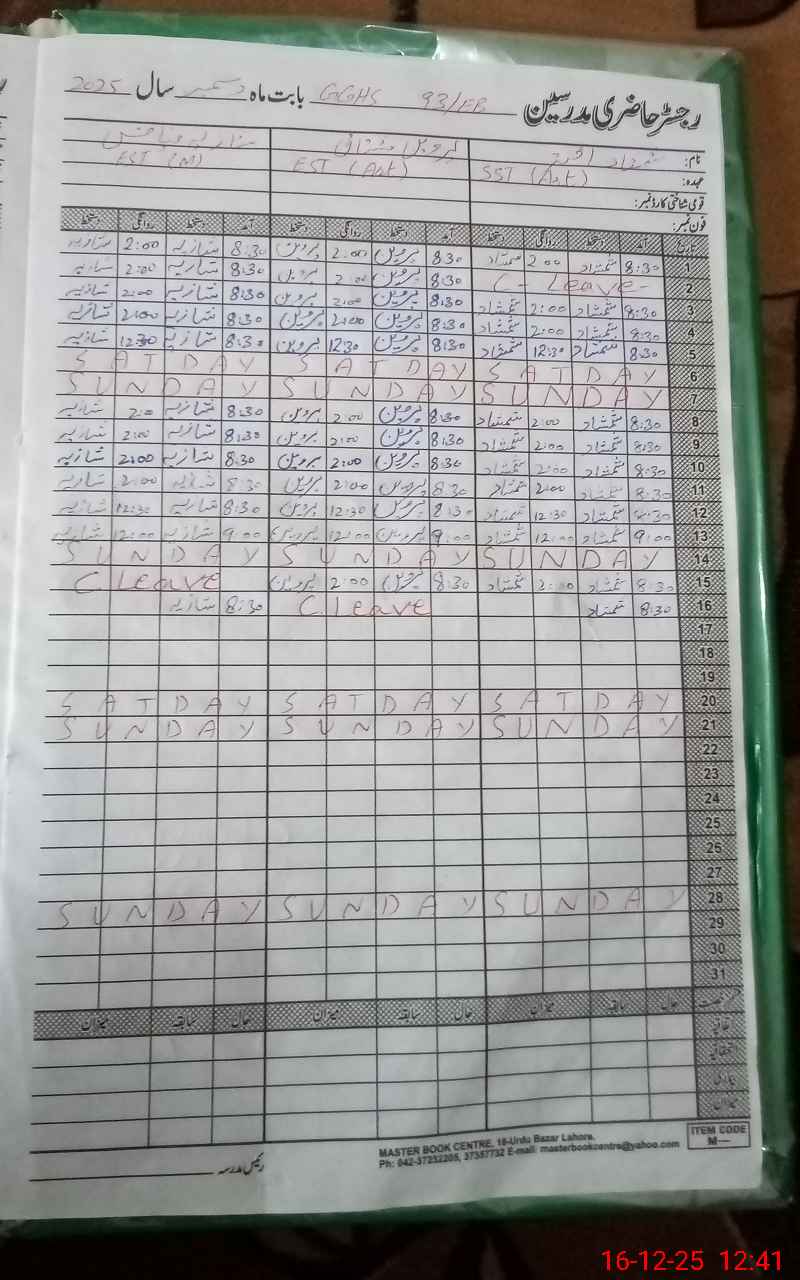 رجسٹر حاضری مدرسین GGHS 93/EB بابت ماہ دسمبر سال 2025
نام:
عہدہ: SST (Art) EST (Art) EST (M)
قومی شناختی کارڈ نمبر:
فون نمبر:
تاریخ آمد دستخط روانگی دستخط آمد دستخط روانگی دستخط آمد دستخط روانگی دستخط
1 8:30 شمشاد 2:00 شمشاد 8:30 پروین 2:00 پروین 8:30 شازیہ 2:00 شازیہ
2 C- Leave- 8:30 پروین 2:00 پروین 8:30 شازیہ 2:00 شازیہ
3 8:30 شمشاد 2:00 شمشاد 8:30 پروین 2:00 پروین 8:30 شازیہ 2:00 شازیہ
4 8:30 شمشاد 2:00 شمشاد 8:30 پروین 2:00 پروین 8:30 شازیہ 2:00 شازیہ
5 8:30 شمشاد 12:30 شمشاد 8:30 پروین 12:30 پروین 8:30 شازیہ 12:30 شازیہ
6 SATDAY SATDAY SATDAY
7 SUNDAY SUNDAY SUNDAY
8 8:30 شمشاد 2:00 شمشاد 8:30 پروین 2:00 پروین 8:30 شازیہ 2:00 شازیہ
9 8:30 شمشاد 2:00 شمشاد 8:30 پروین 2:00 پروین 8:30 شازیہ 2:00 شازیہ
10 8:30 شمشاد 2:00 شمشاد 8:30 پروین 2:00 پروین 8:30 شازیہ 2:00 شازیہ
11 8:30 شمشاد 2:00 شمشاد 8:30 پروین 2:00 پروین 8:30 شازیہ 2:00 شازیہ
12 8:30 شمشاد 12:30 شمشاد 8:30 پروین 12:30 پروین 8:30 شازیہ 12:30 شازیہ
13 9:00 شمشاد 12:00 شمشاد 9:00 پروین 12:00 پروین 9:00 شازیہ 12:00 شازیہ
14 SUNDAY SUNDAY SUNDAY
15 8:30 شمشاد 2:00 شمشاد 8:30 پروین 2:00 پروین C Leave
16 8:30 شمشاد C Leave 8:30 شازیہ
17
18
19
20 SATDAY SATDAY SATDAY
21 SUNDAY SUNDAY SUNDAY
22
23
24
25
26
27
28 SUNDAY SUNDAY SUNDAY
29
30
31
حال سابقہ میزان حال سابقہ میزان حال سابقہ میزان
اتفاقیہ
میزان
ITEM CODE
M—
MASTER BOOK CENTRE, 18-Urdu Bazar Lahore.
Ph: 042-37232205, 37357732 E-mail: masterbookcentre@yahoo.com
رئیس مدرسہ
16-12-25 12:41